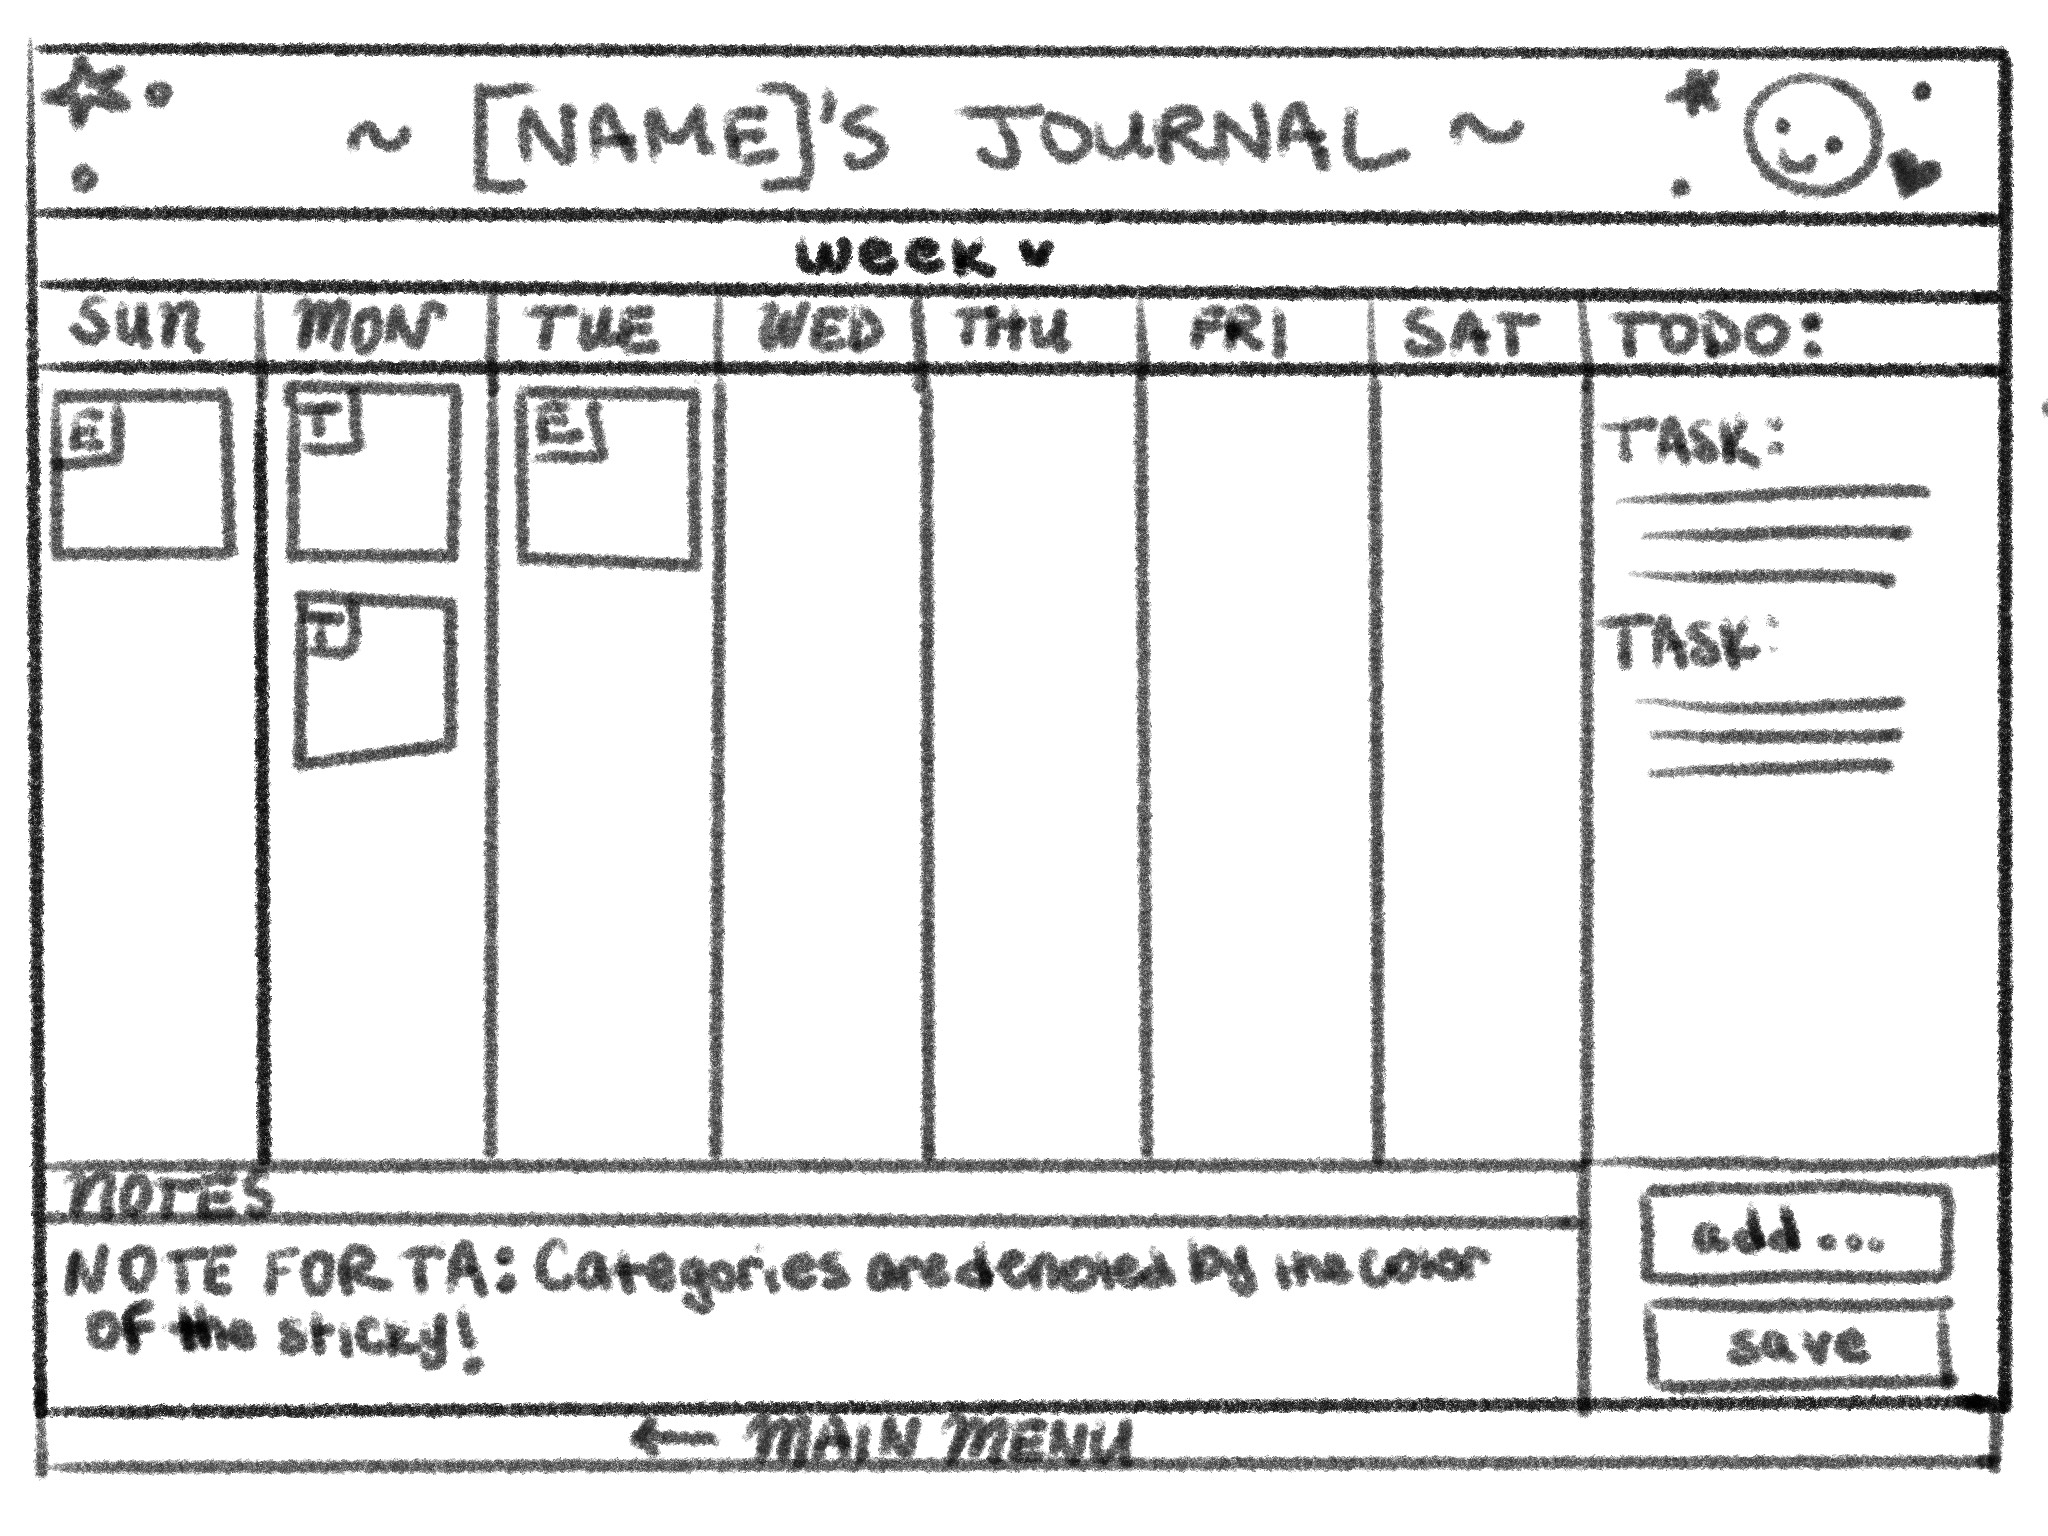 ~ [NAME]'S JOURNAL ~
week
SUN MON TUE WED THU FRI SAT TODO:
E T E
TASK:
T
TASK:
NOTES
NOTE FOR TA: Categories are denoted by the color
of the sticky!
add...
save
← MAIN MENU